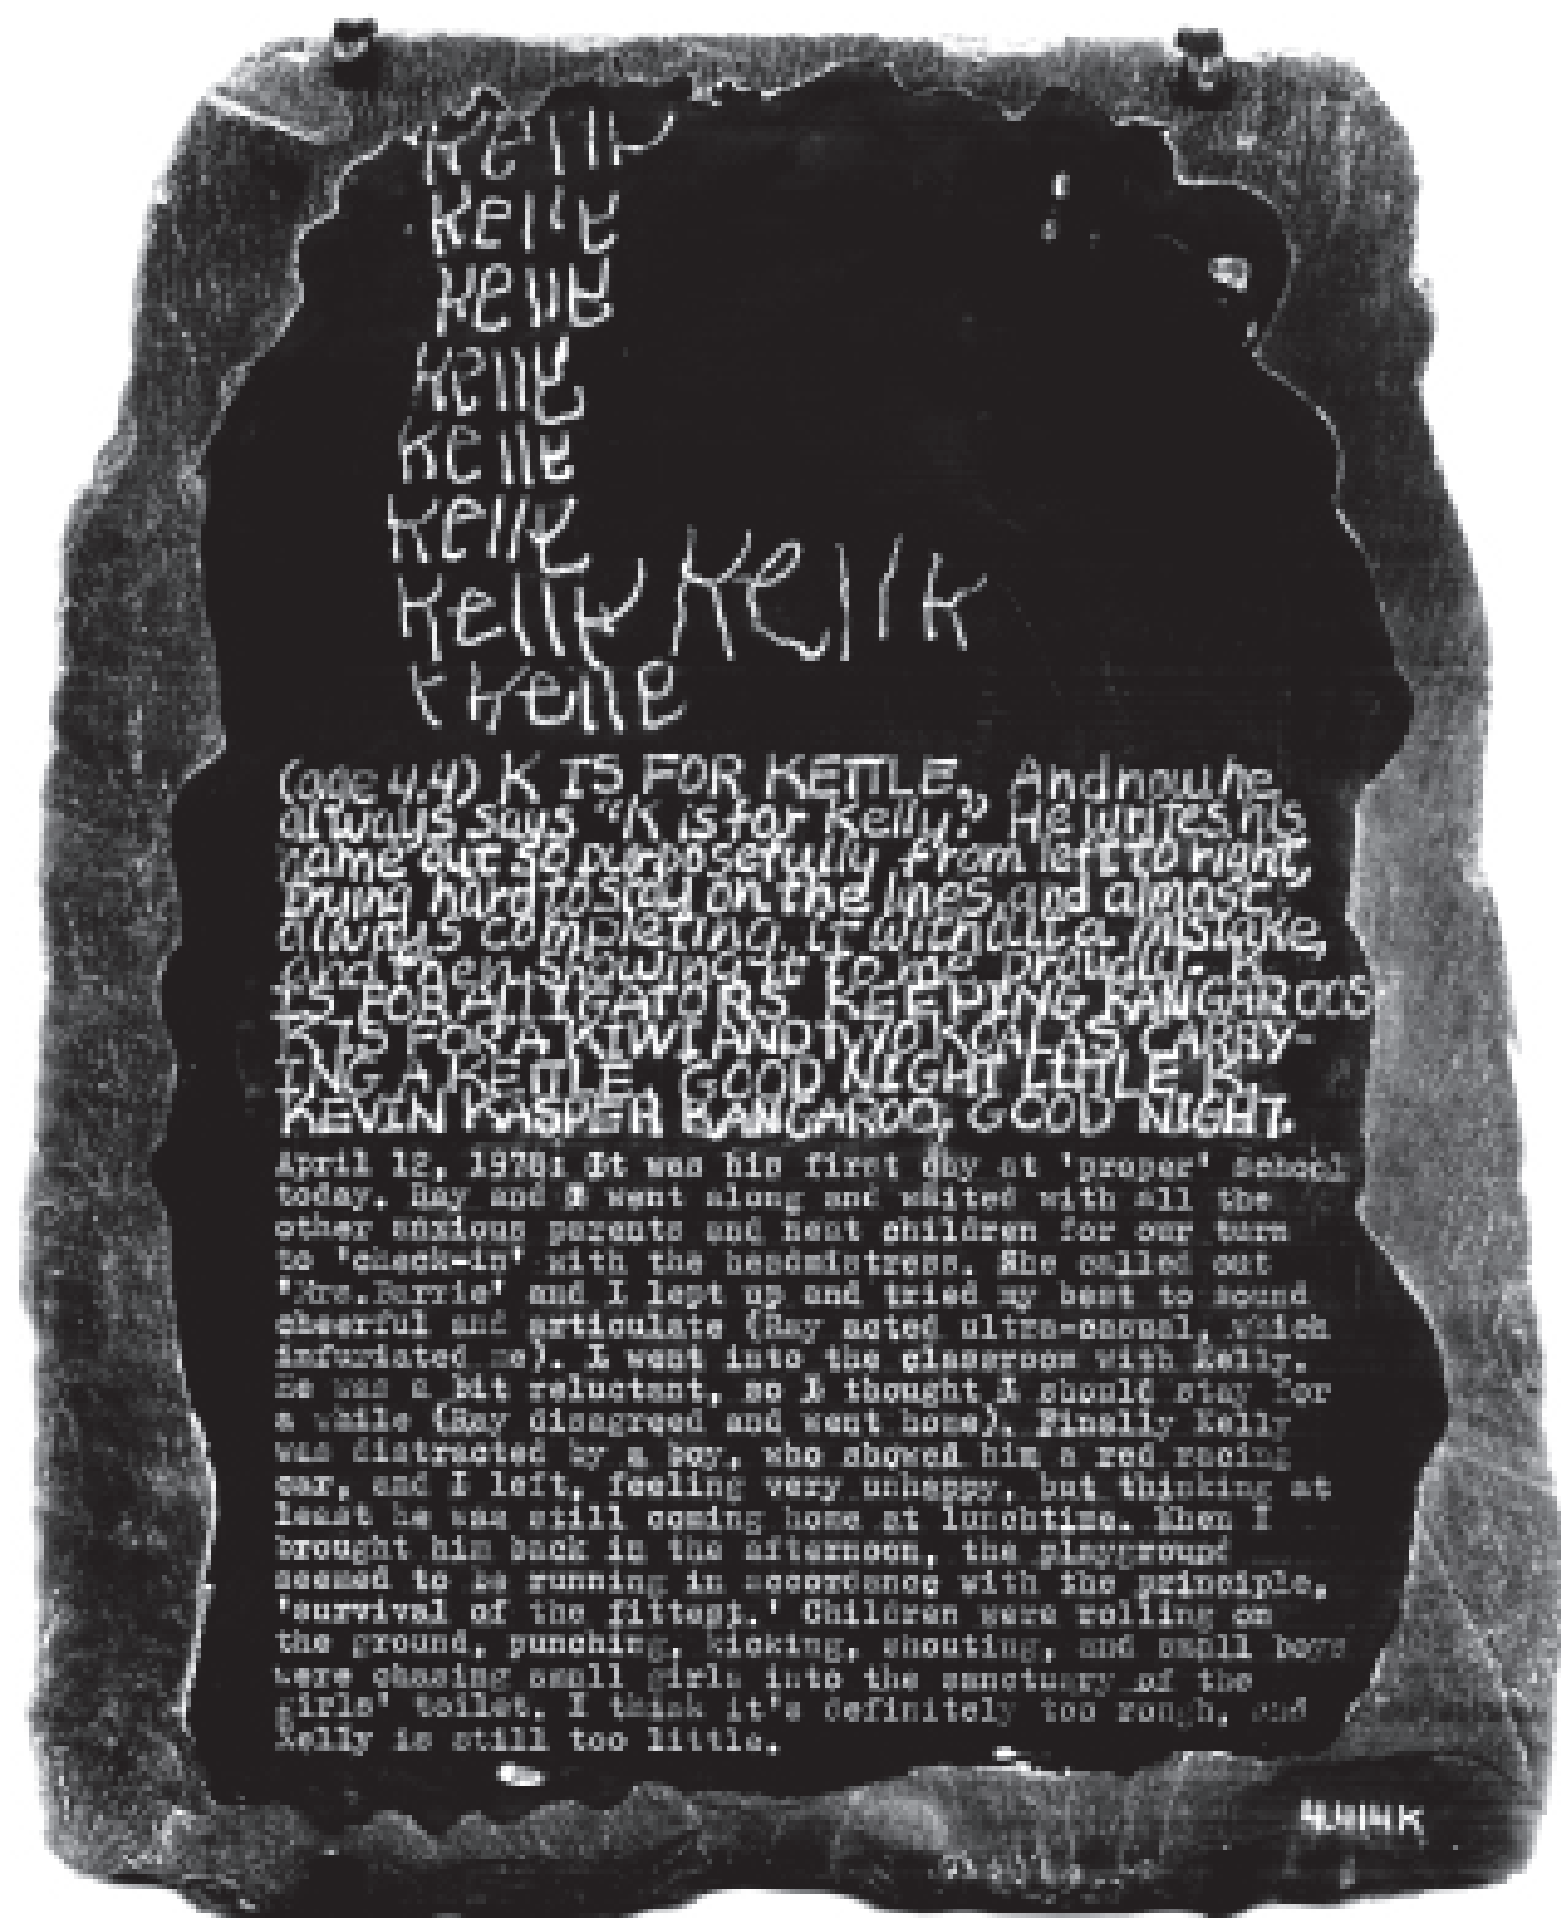 Kelly
Kelle
Kelle
Kelle
Kelle
Kelly
Kelly Kellk
K Kelle
(age 4.4) K IS FOR KETTLE. And now he
always says "K is for Kelly." He writes his
name out so purposefully from left to right,
trying hard to stay on the lines and almost
always completing it without a mistake,
and then showing it to me proudly. K
IS FOR ALLIGATORS KEEPING KANGAROOS
K IS FOR A KIWI AND TWO KOALAS CARRY-
ING A KETTLE. GOOD NIGHT LITTLE K.
KEVIN KASPER KANGAROO. GOOD NIGHT.
April 12, 1978: It was his first day at 'proper' school
today. Ray and I went along and waited with all the
other anxious parents and neat children for our turn
to 'check-in' with the headmistress. She called out
'Mrs.Barrie' and I lept up and tried my best to sound
cheerful and articulate (Ray acted ultra-casual, which
infuriated me). I went into the classroom with Kelly.
He was a bit reluctant, so I thought I should stay for
a while (Ray disagreed and went home). Finally Kelly
was distracted by a boy, who showed him a red racing
car, and I left, feeling very unhappy, but thinking at
least he was still coming home at lunchtime. When I
brought him back in the afternoon, the playground
seemed to be running in accordance with the principle,
'survival of the fittest.' Children were rolling on
the ground, punching, kicking, shouting, and small boys
were chasing small girls into the sanctuary of the
girls' toilet. I think it's definitely too rough, and
Kelly is still too little.